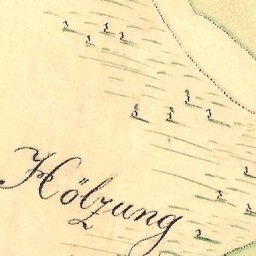 Hölzung